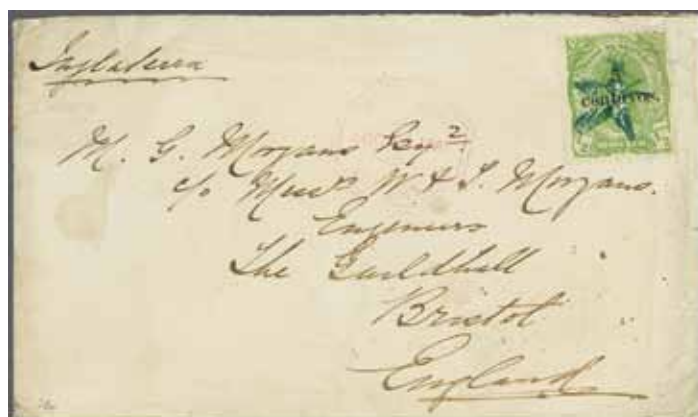 Inglaterra
5
centavos.
M. G. Morgans Esqre
c/o Messrs W. & J. Morgans.
Engineers
The Guildhall
Bristol
England